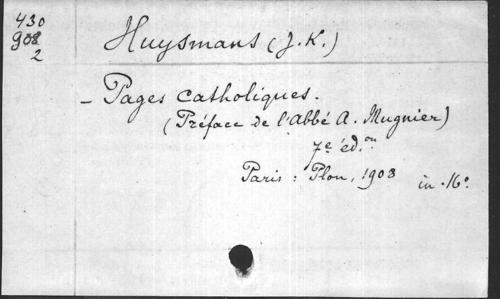 430
908
2
Huysmans (J. K.)
- Pages catholiques.
(Préface de l'Abbé A. Mugnier)
7e éd.on
Paris : Plon, 1908 in-16o